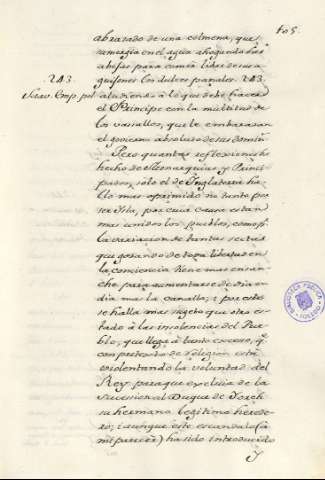 105
abrazado de una colmena, que
sumergia en el agua ahogando sus
abejas para comer libre de sus a
guijones los dulces panales. 243.
243.
Saav. Emp. pol. aludiendo à lo que debe hacer
el Principe con la multitud de
los vasallos, que le embarazan
el govierno absoluto de sus domin.
Pero quantas reflexiones he
hecho de Monarquias y Princi-
pados, solo el de Inglaterra ha-
llo mas oprimido no tanto por
ser Isla, por cuia causa estan
mas unidos los pueblos, como
la variacion de tantas sectas
que gozando de toda libertad en
la conciencia tiene mas ensan-
che para aumentarse de dia en
dia mas la canalla; i por esto
se halla mas sugeto que otro es-
tado à las insolencias del Pue-
blo, que llega à tanto exceso, q.
con pretexto de Religion està
violentando la voluntad del
Rey, para que excluia de la
succession al Duque de Iorch
su hermano legitimo herede-
ro; i aunque este escandalo (à
mi parecer) ha sido introducido
y
BIBLIOTECA PUBLICA
TOLEDO